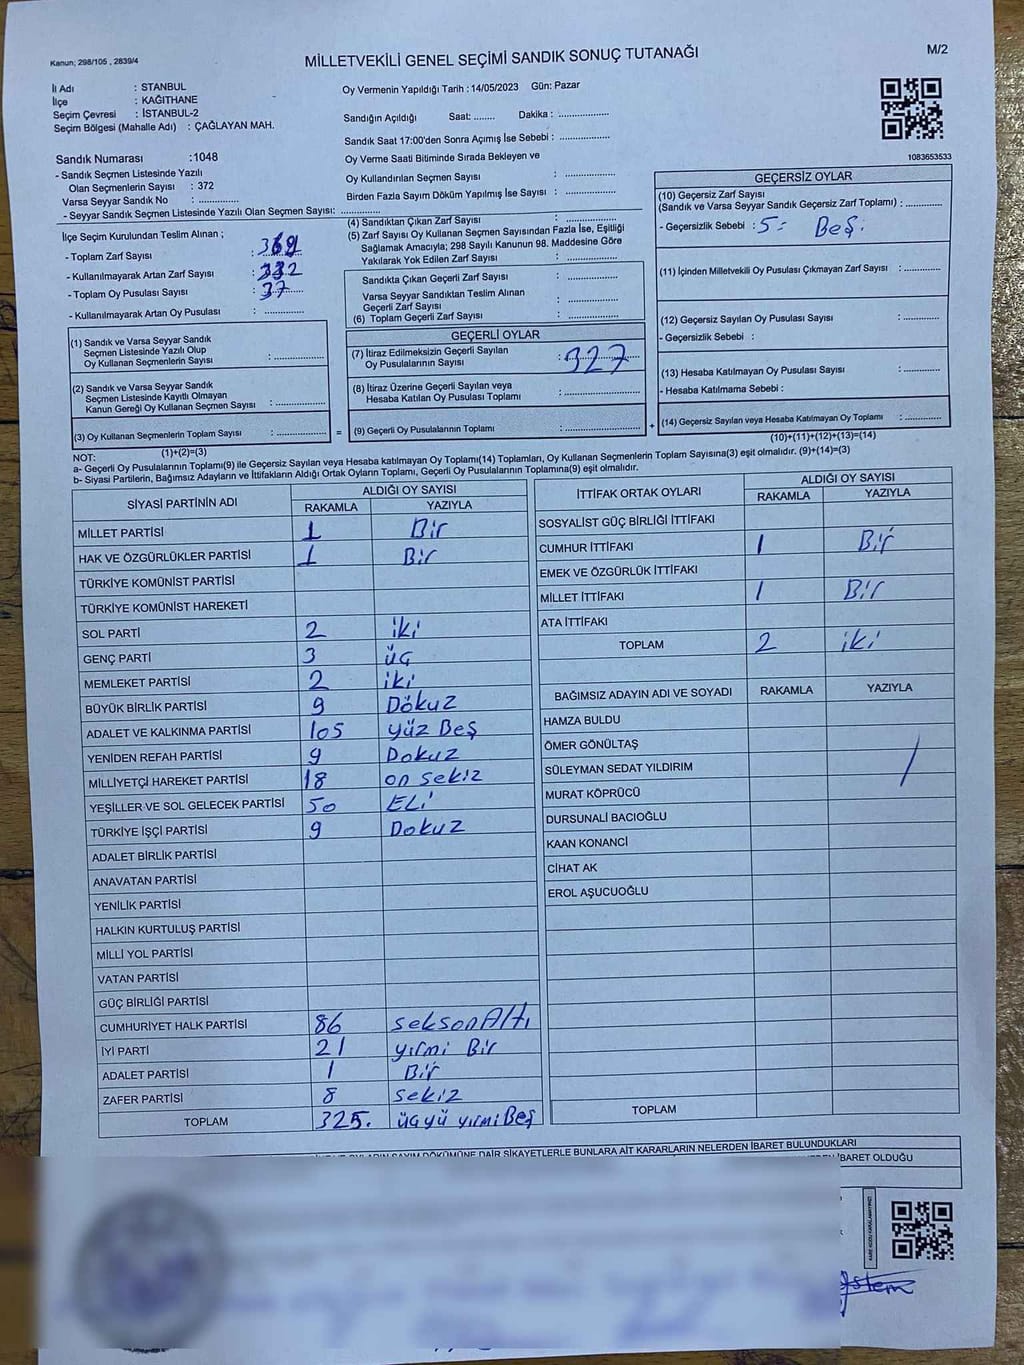 Kanun; 298/105 , 2839/4
MİLLETVEKİLİ GENEL SEÇİMİ SANDIK SONUÇ TUTANAĞI
M/2
İl Adı : STANBUL
İlçe : KAĞITHANE
Seçim Çevresi : İSTANBUL-2
Seçim Bölgesi (Mahalle Adı) : ÇAĞLAYAN MAH.
Sandık Numarası :1048
- Sandık Seçmen Listesinde Yazılı
Olan Seçmenlerin Sayısı : 372
Varsa Seyyar Sandık No : ............
- Seyyar Sandık Seçmen Listesinde Yazılı Olan Seçmen Sayısı: ............
Oy Vermenin Yapıldığı Tarih : 14/05/2023 Gün: Pazar
Sandığın Açıldığı Saat: ....... Dakika : ...............
Sandık Saat 17:00'den Sonra Açımış İse Sebebi : ...............
Oy Verme Saati Bitiminde Sırada Bekleyen ve
Oy Kullandırılan Seçmen Sayısı : ...............
Birden Fazla Sayım Döküm Yapılmış İse Sayısı : ...............
1083653533
İlçe Seçim Kurulundan Teslim Alınan ;
- Toplam Zarf Sayısı : 369
- Kullanılmayarak Artan Zarf Sayısı : 332
- Toplam Oy Pusulası Sayısı : 37
- Kullanılmayarak Artan Oy Pusulası : ............
(1) Sandık ve Varsa Seyyar Sandık
Seçmen Listesinde Yazılı Olup
Oy Kullanan Seçmenlerin Sayısı : ...............
(2) Sandık ve Varsa Seyyar Sandık
Seçmen Listesinde Kayıtlı Olmayan
Kanun Gereği Oy Kullanan Seçmen Sayısı : ...............
(3) Oy Kullanan Seçmenlerin Toplam Sayısı : ............... =
(1)+(2)=(3)
(4) Sandıktan Çıkan Zarf Sayısı : ...............
(5) Zarf Sayısı Oy Kullanan Seçmen Sayısından Fazla İse, Eşitliği
Sağlamak Amacıyla; 298 Sayılı Kanunun 98. Maddesine Göre
Yakılarak Yok Edilen Zarf Sayısı : ...............
Sandıkta Çıkan Geçerli Zarf Sayısı : ...............
Varsa Seyyar Sandıktan Teslim Alınan
Geçerli Zarf Sayısı : ...............
(6) Toplam Geçerli Zarf Sayısı : ...............
GEÇERLİ OYLAR
(7) İtiraz Edilmeksizin Geçerli Sayılan
Oy Pusulalarının Sayısı : 327
(8) İtiraz Üzerine Geçerli Sayılan veya
Hesaba Katılan Oy Pusulası Toplamı : ...............
(9) Geçerli Oy Pusulalarının Toplamı : ............... +
GEÇERSİZ OYLAR
(10) Geçersiz Zarf Sayısı
(Sandık ve Varsa Seyyar Sandık Geçersiz Zarf Toplamı) : ............
- Geçersizlik Sebebi : 5 : Beş.
(11) İçinden Milletvekili Oy Pusulası Çıkmayan Zarf Sayısı : ............
(12) Geçersiz Sayılan Oy Pusulası Sayısı : ............
- Geçersizlik Sebebi :
(13) Hesaba Katılmayan Oy Pusulası Sayısı : ............
- Hesaba Katılmama Sebebi :
(14) Geçersiz Sayılan veya Hesaba Katılmayan Oy Toplamı : ............
(10)+(11)+(12)+(13)=(14)
NOT:
a- Geçerli Oy Pusulalarının Toplamı(9) ile Geçersiz Sayılan veya Hesaba katılmayan Oy Toplamı(14) Toplamları, Oy Kullanan Seçmenlerin Toplam Sayısına(3) eşit olmalıdır. (9)+(14)=(3)
b- Siyasi Partilerin, Bağımsız Adayların ve İttifakların Aldığı Ortak Oyların Toplamı, Geçerli Oy Pusulalarının Toplamına(9) eşit olmalıdır.
SİYASİ PARTİNİN ADI ALDIĞI OY SAYISI
RAKAMLA YAZIYLA
MİLLET PARTİSİ 1 Bir
HAK VE ÖZGÜRLÜKLER PARTİSİ 1 Bir
TÜRKİYE KOMÜNİST PARTİSİ
TÜRKİYE KOMÜNİST HAREKETİ
SOL PARTİ 2 iki
GENÇ PARTİ 3 üç
MEMLEKET PARTİSİ 2 iki
BÜYÜK BİRLİK PARTİSİ 9 Dökuz
ADALET VE KALKINMA PARTİSİ 105 yüz Beş
YENİDEN REFAH PARTİSİ 9 Dokuz
MİLLİYETÇİ HAREKET PARTİSİ 18 on sekiz
YEŞİLLER VE SOL GELECEK PARTİSİ 50 ELi
TÜRKİYE İŞÇİ PARTİSİ 9 Dokuz
ADALET BİRLİK PARTİSİ
ANAVATAN PARTİSİ
YENİLİK PARTİSİ
HALKIN KURTULUŞ PARTİSİ
MİLLİ YOL PARTİSİ
VATAN PARTİSİ
GÜÇ BİRLİĞİ PARTİSİ
CUMHURİYET HALK PARTİSİ 86 seksonAltı
İYİ PARTİ 21 yirmi Bir
ADALET PARTİSİ 1 Bir
ZAFER PARTİSİ 8 sekiz
TOPLAM 325. üçyü yirmiBeş
İTTİFAK ORTAK OYLARI ALDIĞI OY SAYISI
RAKAMLA YAZIYLA
SOSYALİST GÜÇ BİRLİĞİ İTTİFAKI
CUMHUR İTTİFAKI 1 Bir
EMEK VE ÖZGÜRLÜK İTTİFAKI
MİLLET İTTİFAKI 1 Bir
ATA İTTİFAKI
TOPLAM 2 iki
BAĞIMSIZ ADAYIN ADI VE SOYADI RAKAMLA YAZIYLA
HAMZA BULDU
ÖMER GÖNÜLTAŞ
SÜLEYMAN SEDAT YILDIRIM
MURAT KÖPRÜCÜ
DURSUNALİ BACIOĞLU
KAAN KONANCİ
CİHAT AK
EROL AŞUCUOĞLU
TOPLAM
OYLARIN SAYIM DÖKÜMÜNE DAİR ŞİKAYETLERLE BUNLARA AİT KARARLARIN NELERDEN İBARET BULUNDUKLARI
İBARET OLDUĞU